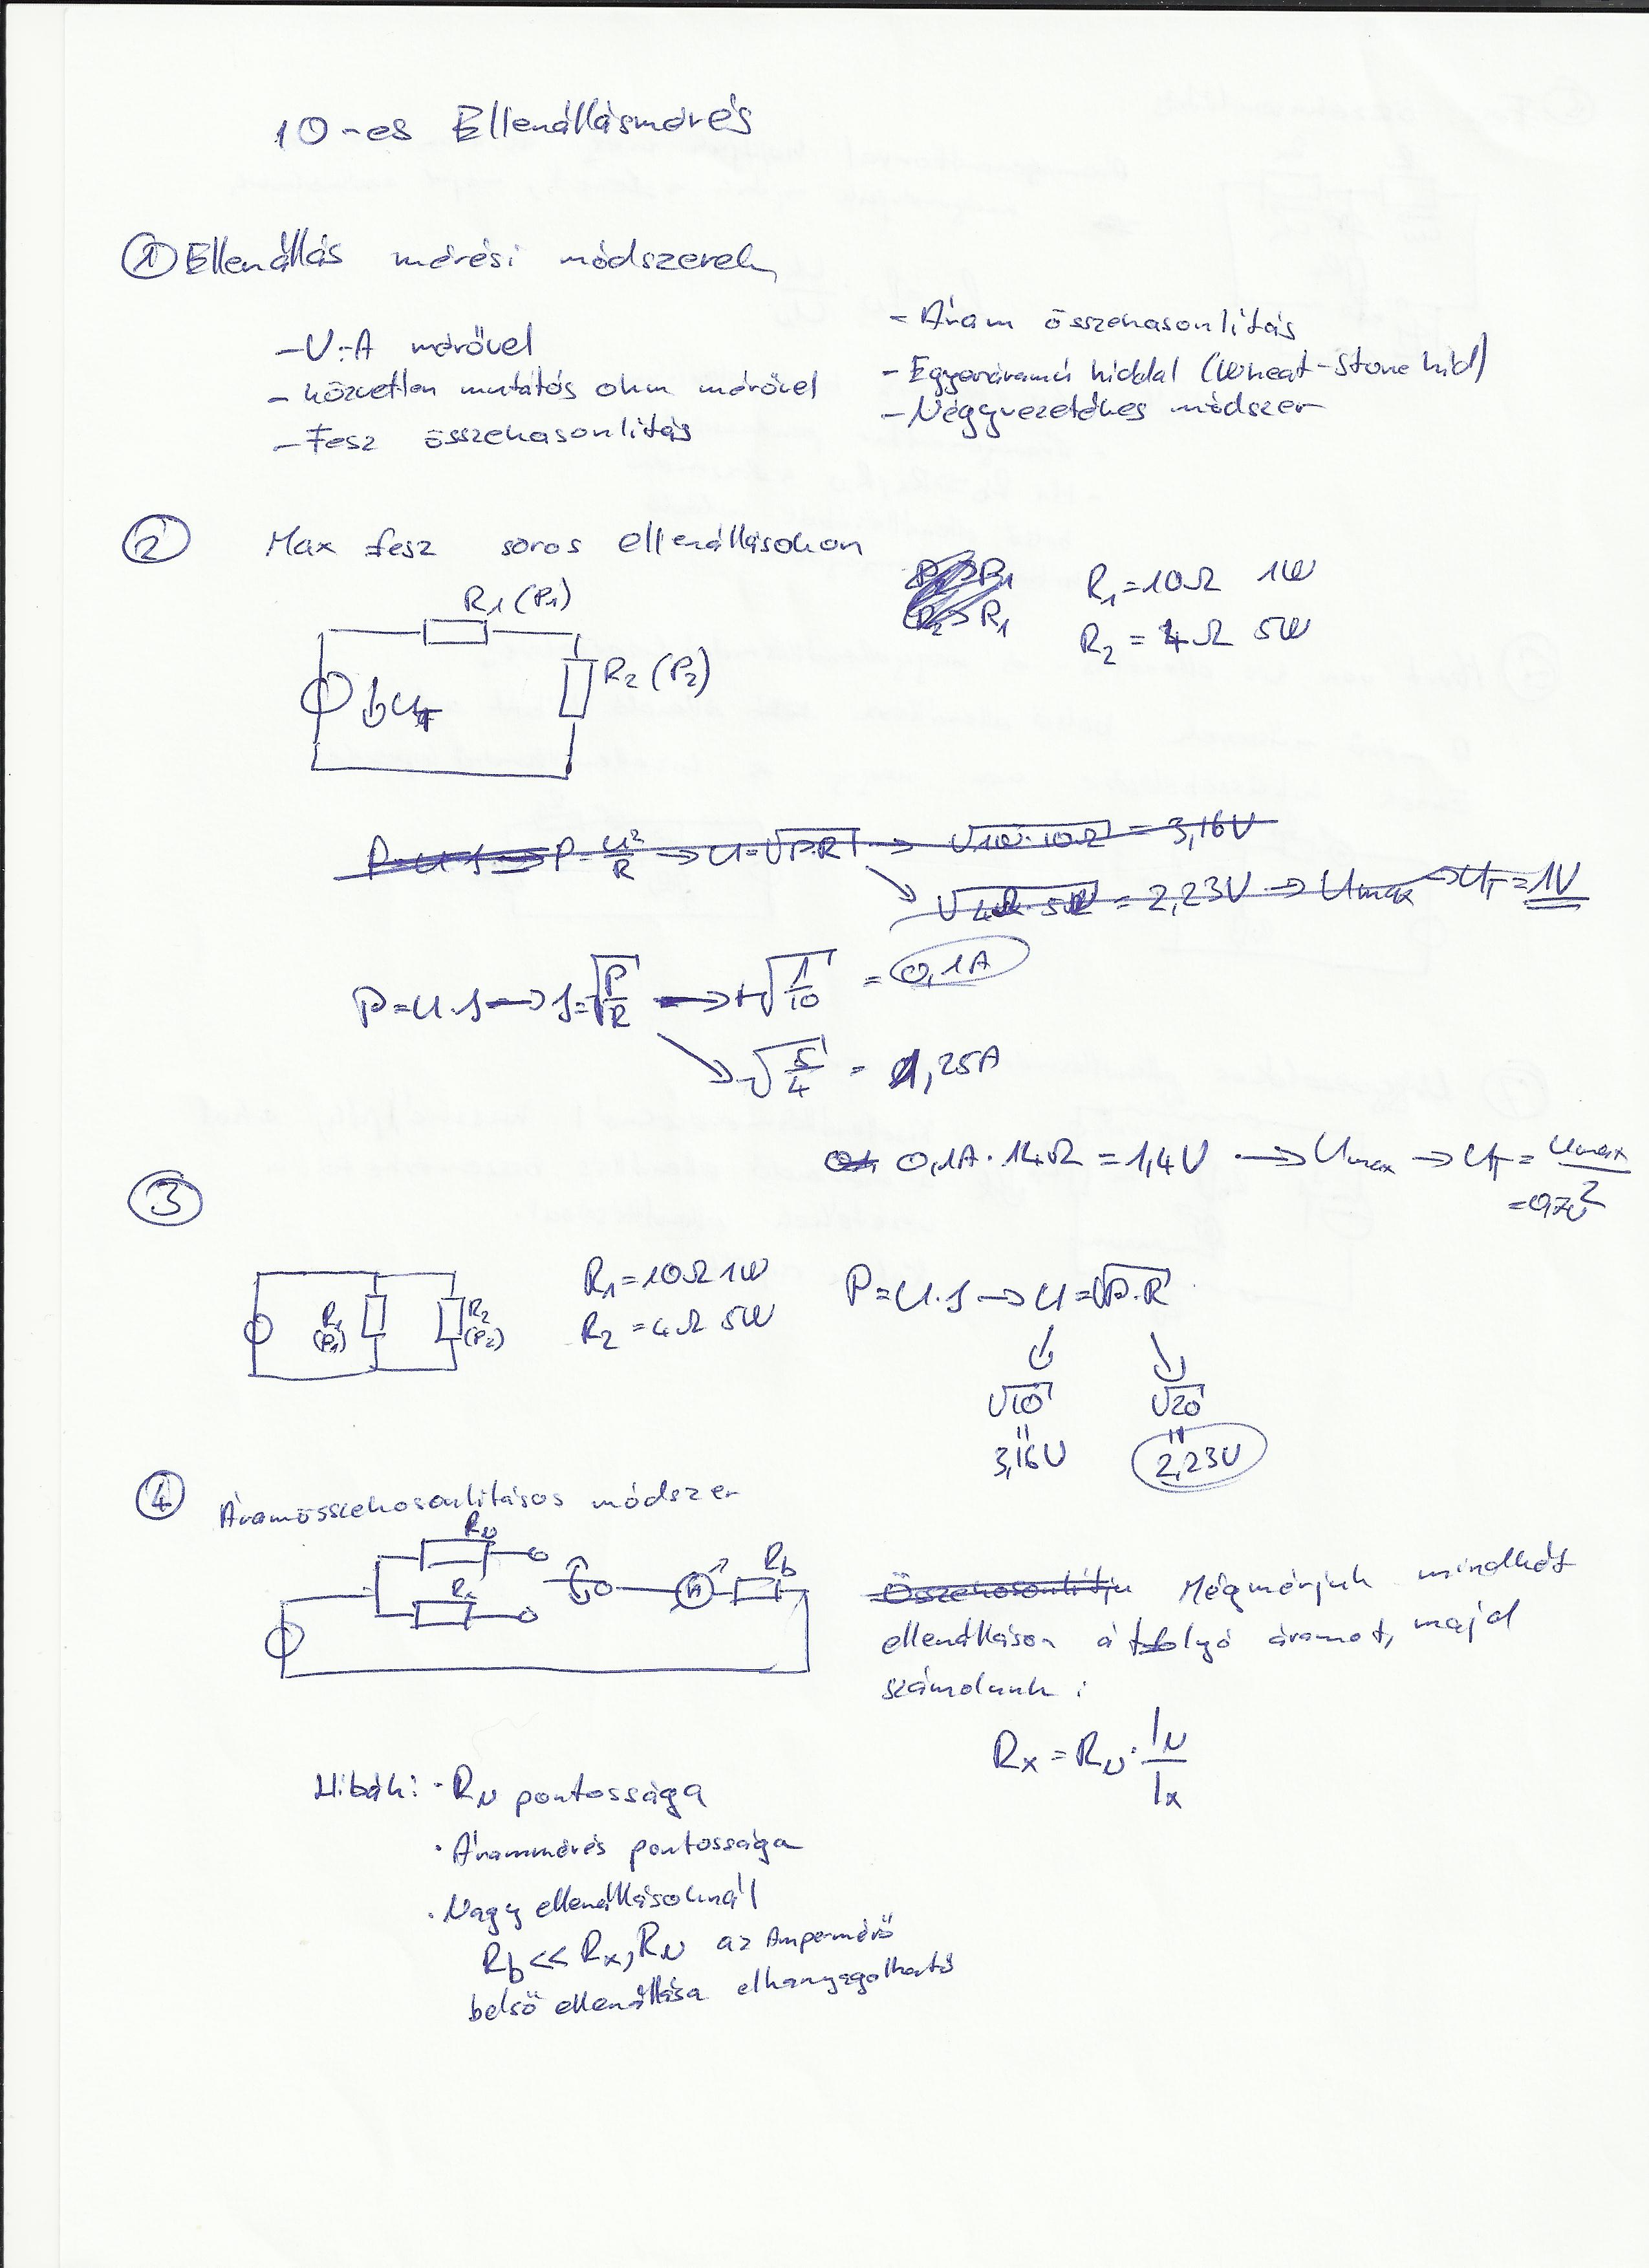 10-es Ellenállásmérés
① Ellenállás mérési módszerek
- V-A mérővel
- közvetlen mutatós ohm mérővel
- Fesz összehasonlitás
- Áram összehasonlitás
- Egyenáramú hiddal (Wheat-Stone hid)
- Négyvezetékes módszer
② Max fesz soros ellenállásokon
P₂>P₁
R₂>R₁
R₁=10Ω 1W
R₂=4Ω 5W
R₁(P₁)
R₂(P₂)
U_T
P=U·I → P=U²/R → U=√P·R → √1W·10Ω = 3,16V
√4Ω·5W = 2,23V → Umax → U_T=1V
P=U·I → I=√P/R → √1/10 = 0,1A
√5/4 = 1,25A
0,1A·14Ω=1,4V → Umax → U_T=Umax/2
=0,7V
③
R₁ (P₁)
R₂ (P₂)
R₁=10Ω 1W
R₂=4Ω 5W
P=U·I → U=√P·R
√10 √20
3,16V 2,23V
④ Áramösszehasonlitásos módszer
R_N
R_x
A
R_b
Összehasonlitju Mégmérjük mindkét
ellenálláson átfolyó áramot, majd
számolunk:
R_x=R_N·I_N/I_x
Hibák: · R_N pontossága
· Árammérés pontossága
· Nagy ellenállásoknál
R_b<<R_x,R_N az Ampermérő
belső ellenállása elhanyagolható